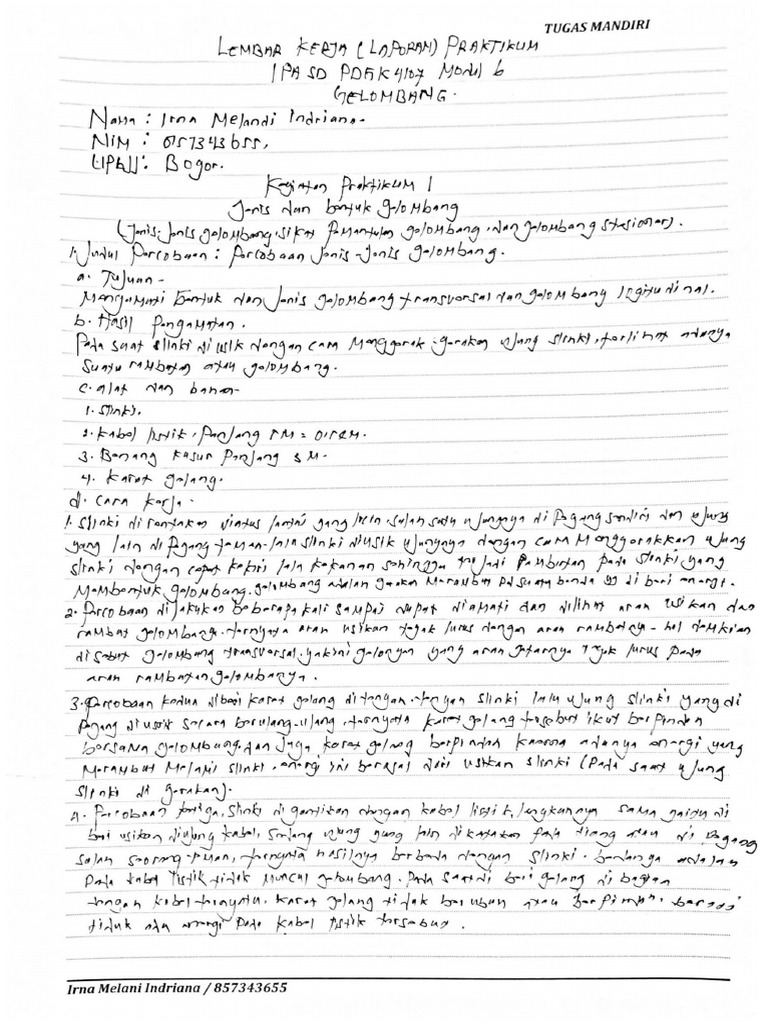 TUGAS MANDIRI
LEMBAR KERJA (LAPORAN) PRAKTIKUM
IPA SD PDGK 4107 Modul 6
GELOMBANG.
Nama : Irna Melandi Indriana.
NIM : 857343655.
UPBJJ : Bogor.
Kegiatan Praktikum 1
Jenis dan bentuk gelombang
(Jenis-Jenis gelombang, sifat Pemantulan gelombang, dan gelombang stasioner).
1. Judul Percobaan : Percobaan Jenis-Jenis gelombang.
a. Tujuan
Mengamati bentuk dan Jenis gelombang transversal dan gelombang logitudinal.
b. Hasil Pengamatan.
Pada saat slinki diusik dengan cara Menggerak-gerakan ujung slinki, terlihat adanya
suatu rambatan atau gelombang.
c. alat dan bahan
1. Slinki.
2. Kabel listrik, Panjang 5M =
3. Benang kasur Panjang 3 M.
4. Karet gelang.
d. Cara kerja.
1. Slinki direntakan diatas lantai yang licin. salah satu ujungnya di Pegang sendiri dan ujung
yang lain di Pegang teman. lalu slinki diusik ujungnya dengan cara Menggerakkan ujung
slinki dengan cepat kekiri lalu kekanan sehingga terjadi rambatan pada slinki yang
Membentuk gelombang. gelombang adalah gerakan Merambat pd suatu benda yg di beri energi.
2. Percobaan di lakukan beberapa kali sampai dapat diamati dan dilihat arah usikan dan
rambat gelombang. ternyata arah usikan tegak lurus dengan arah rambatnya. hal demikian
disebut gelombang transversal. yakini gelongan yang arah getarnya Tegak lurus pada
arah rambatan gelombangnya.
3. Percobaan kedua diberi karet gelang di tengah-tengah slinki lalu ujung slinki yang di
Pegang diusik secara berulang-ulang, ternyata karet gelang tersebut ikut berpindah
bersama gelombang. dan Juga karet gelang berpindah karena adanya energi yang
Merambat Melalui slinki. energi ini berasal dari usikan slinki (Pada saat ujung
slinki di gerakan).
4. Percobaan ketiga, slinki di gantikan dengan kabel listik, langkahnya sama yaitu di
beri usikan diujung kabel, sedang ujung yang lain dikaitakan pada tiang atau di Pegang
salah seorang teman, ternyata hasilnya berbeda dengan slinki. bedanya adalah
Pada kabel listik tidak Muncul gelombang. Pada saat di beri gelang di bagian
tengah kabel ternyata, karet gelang tidak berubah atau berpindah, berarti
tidak ada energi Pada kabel listik tersebut.
Irna Melani Indriana / 857343655